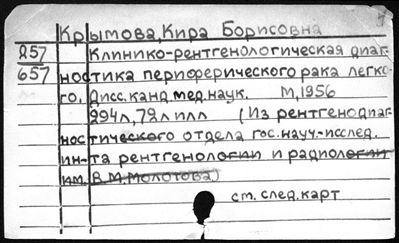 Крымова, Кира Борисовна
257 Клинико-рентгенологическая диаг-
657 ностика периферического рака легко-
го. Дисс. канд. мед. наук. М, 1956
294л, 79л илл (Из рентгенодиаг-
ностического отдела гос. науч.-исслед.
ин-та рентгенологии и радиологии
им. В.М. Молотова)
см. след. карт